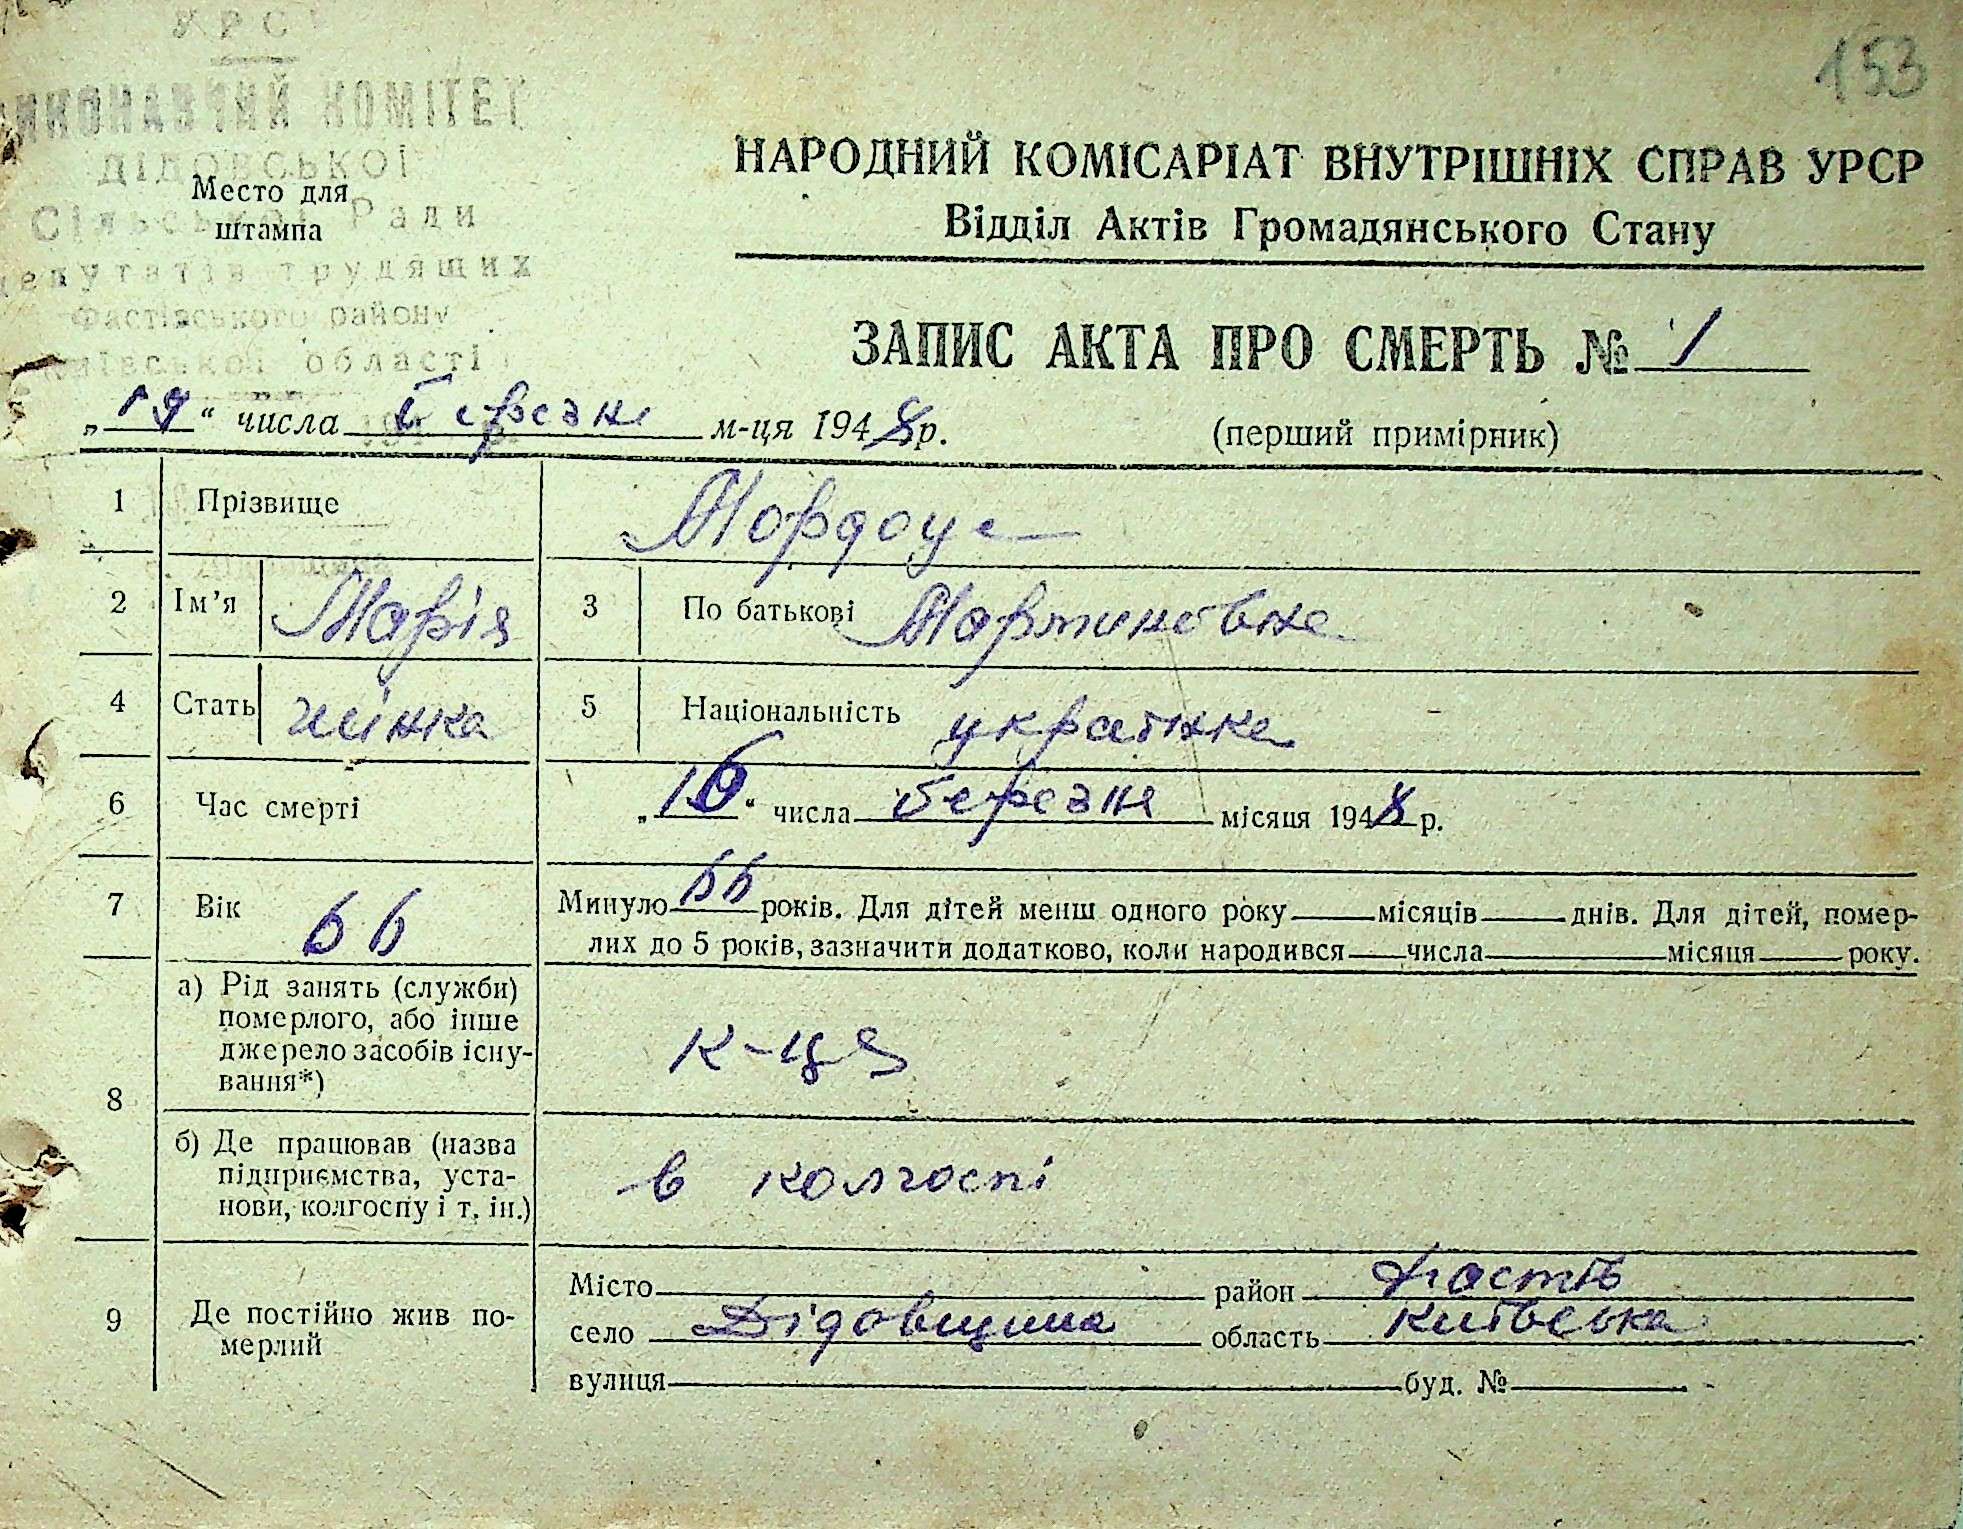 УРСР
ВИКОНАВЧИЙ КОМІТЕТ
ДІДОВСЬКОЇ
Сільської Ради
депутатів трудящих
Фастівського району
Київської області
Место для
штампа
153
НАРОДНИЙ КОМІСАРІАТ ВНУТРІШНІХ СПРАВ УРСР
Відділ Актів Громадянського Стану
ЗАПИС АКТА ПРО СМЕРТЬ № 1
„19“ числа березня м-ця 1948 р.
(перший примірник)
1 Прізвище Мордоус
2 Ім’я Марія 3 По батькові Мартиновна
4 Стать жінка 5 Національність українка
6 Час смерті „16“ числа березня місяця 1948 р.
7 Вік 66 Минуло 66 років. Для дітей менш одного року місяців днів. Для дітей, помер-
лих до 5 років, зазначити додатково, коли народився числа місяця року.
8 а) Рід занять (служби)
померлого, або інше
джерело засобів існу-
вання*)
к-ця
б) Де працював (назва
підприємства, уста-
нови, колгоспу і т. ін.)
в колгоспі
9 Де постійно жив по-
мерлий
Місто район Фастів
село Дідовщина область Київська
вулиця буд. №